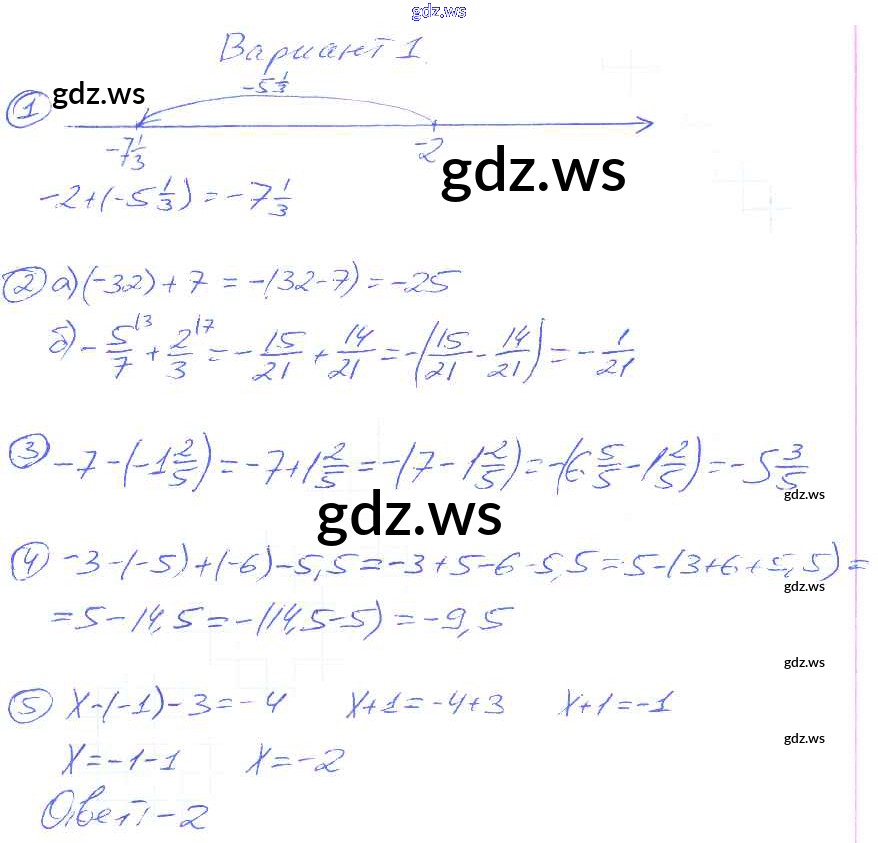 gdz.ws
Вариант 1.
-5 1/3
① gdz.ws
-7 1/3 -2
gdz.ws
-2+(-5 1/3)=-7 1/3
② а) (-32)+7=-(32-7)=-25
б) -5/7 \3 + 2/3 \7 = -15/21 + 14/21 = -(15/21 - 14/21) = -1/21
③ -7-(-1 2/5)=-7+1 2/5=-(7-1 2/5)=-(6 5/5-1 2/5)=-5 3/5
gdz.ws
gdz.ws
④ -3-(-5)+(-6)-5,5=-3+5-6-5,5=5-(3+6+5,5)=
gdz.ws
=5-14,5=-(14,5-5)=-9,5
gdz.ws
⑤ x-(-1)-3=-4 x+1=-4+3 x+1=-1
gdz.ws
x=-1-1 x=-2
Ответ: -2